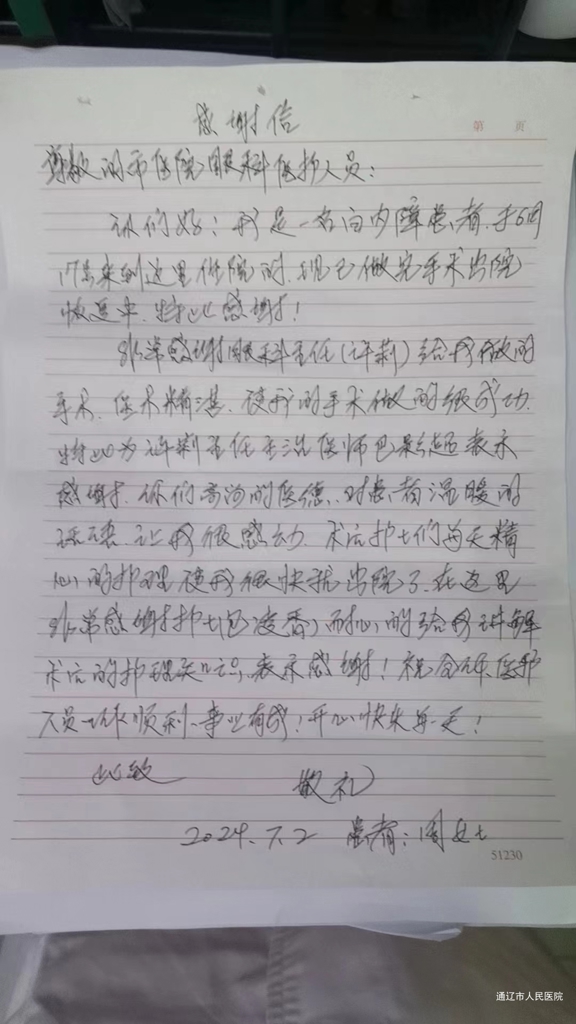 第 页
感谢信
尊敬的市医院眼科医护人员：
你们好！我是一名白内障患者，于6月
17号来到这里住院的，现已做完手术出院
恢复中，特此感谢！
非常感谢眼科主任（许莉）给我做的
手术，医术精湛，使我的手术做的很成功，
特此为许莉主任主治医师巴影超表示
感谢，你们高尚的医德，对患者温暖的
话语，让我很感动，术后护士们每天精
心的护理使我很快就出院了，在这里
非常感谢护士（包凌香）耐心的给我讲解
术后的护理知识，表示感谢！祝全体医护
人员工作顺利，事业有成！开心快乐每一天！
此致 敬礼
2024.7.2 患者：周女士
51230
通辽市人民医院